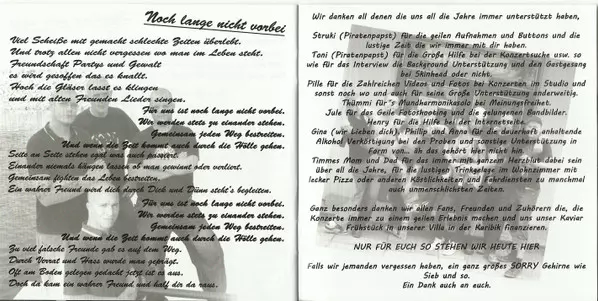 Noch lange nicht vorbei
Viel Scheiße mit gemacht schlechte Zeiten überlebt.
Und trotz allen nicht vergessen wo man im Leben steht.
Freundschaft Partys und Gewalt
es wird gesoffen das es knallt.
Hoch die Gläser lasst es klingen
und mit alten Freunden Lieder singen.
Für uns ist noch lange nicht vorbei.
Wir werden stets zu einander stehen.
Gemeinsam jeden Weg bestreiten.
Und wenn die Zeit kommt auch durch die Hölle gehen.
Seite an Seite stehen egal was auch passiert.
Einander niemals hängen lassen ob man gewinnt oder verliert.
Gemeinsam fighten das Leben bestreiten.
Ein wahrer Freund wird dich durch Dick und Dünn stets begleiten.
Für uns ist noch lange nicht vorbei.
Wir werden stets zu einander stehen.
Gemeinsam jeden Weg bestreiten.
Und wenn die Zeit kommt auch durch die Hölle gehen.
Zu viel falsche Freunde gab es auf dem Weg.
Durch Verrat und Hass wurde man geprägt.
Oft am Boden gelegen gedacht jetzt ist es aus.
Doch da kam ein wahrer Freund und half dir da raus.
Wir danken all denen die uns all die Jahre immer unterstützt haben,
Struki (Piratenpapst) für die geilen Aufnahmen und Buttons und die
lustige Zeit die wir immer mit dir haben.
Toni (Piratenpapst) für die Große Hilfe bei der Konzertsuche usw. so
wie für das Interview die Background Unterstützung und den Gastgesang
bei Skinhead oder nicht.
Pille für die Zahlreichen Videos und Fotos bei Konzerten im Studio und
sonst noch wo und auch für seine Große Unterstützung anderweitig.
Thümmi für's Mundharmonikasolo bei Meinungsfreiheit.
Jule für das Geile Fotoshooting und die gelungenen Bandbilder.
Henry für die Hilfe bei der Internetseite.
Gina (wir Lieben dich), Philip und Anne für die dauerhaft anhaltende
Alkohol Verköstigung bei den Proben und sonstige Unterstützung in
Form von... äh das gehört hier nicht hin.
Timmes Mom und Dad für das immer mit ganzem Herzblut dabei sein
über all die Jahre, für die lustigen Trinkgelage im Wohnzimmer mit
lecker Pizza oder anderen Köstlichkeiten und Fahrdiensten zu manchmal
auch unmenschlichsten Zeiten.
Ganz besonders danken wir allen Fans, Freunden und Zuhörern die, die
Konzerte immer zu einem geilen Erlebnis machen und uns unser Kaviar
Frühstück in unserer Villa in der Karibik finanzieren.
NUR FÜR EUCH SO STEHEN WIR HEUTE HIER
Falls wir jemanden vergessen haben, ein ganz großes SORRY Gehirne wie
Sieb und so.
Ein Dank auch an euch.